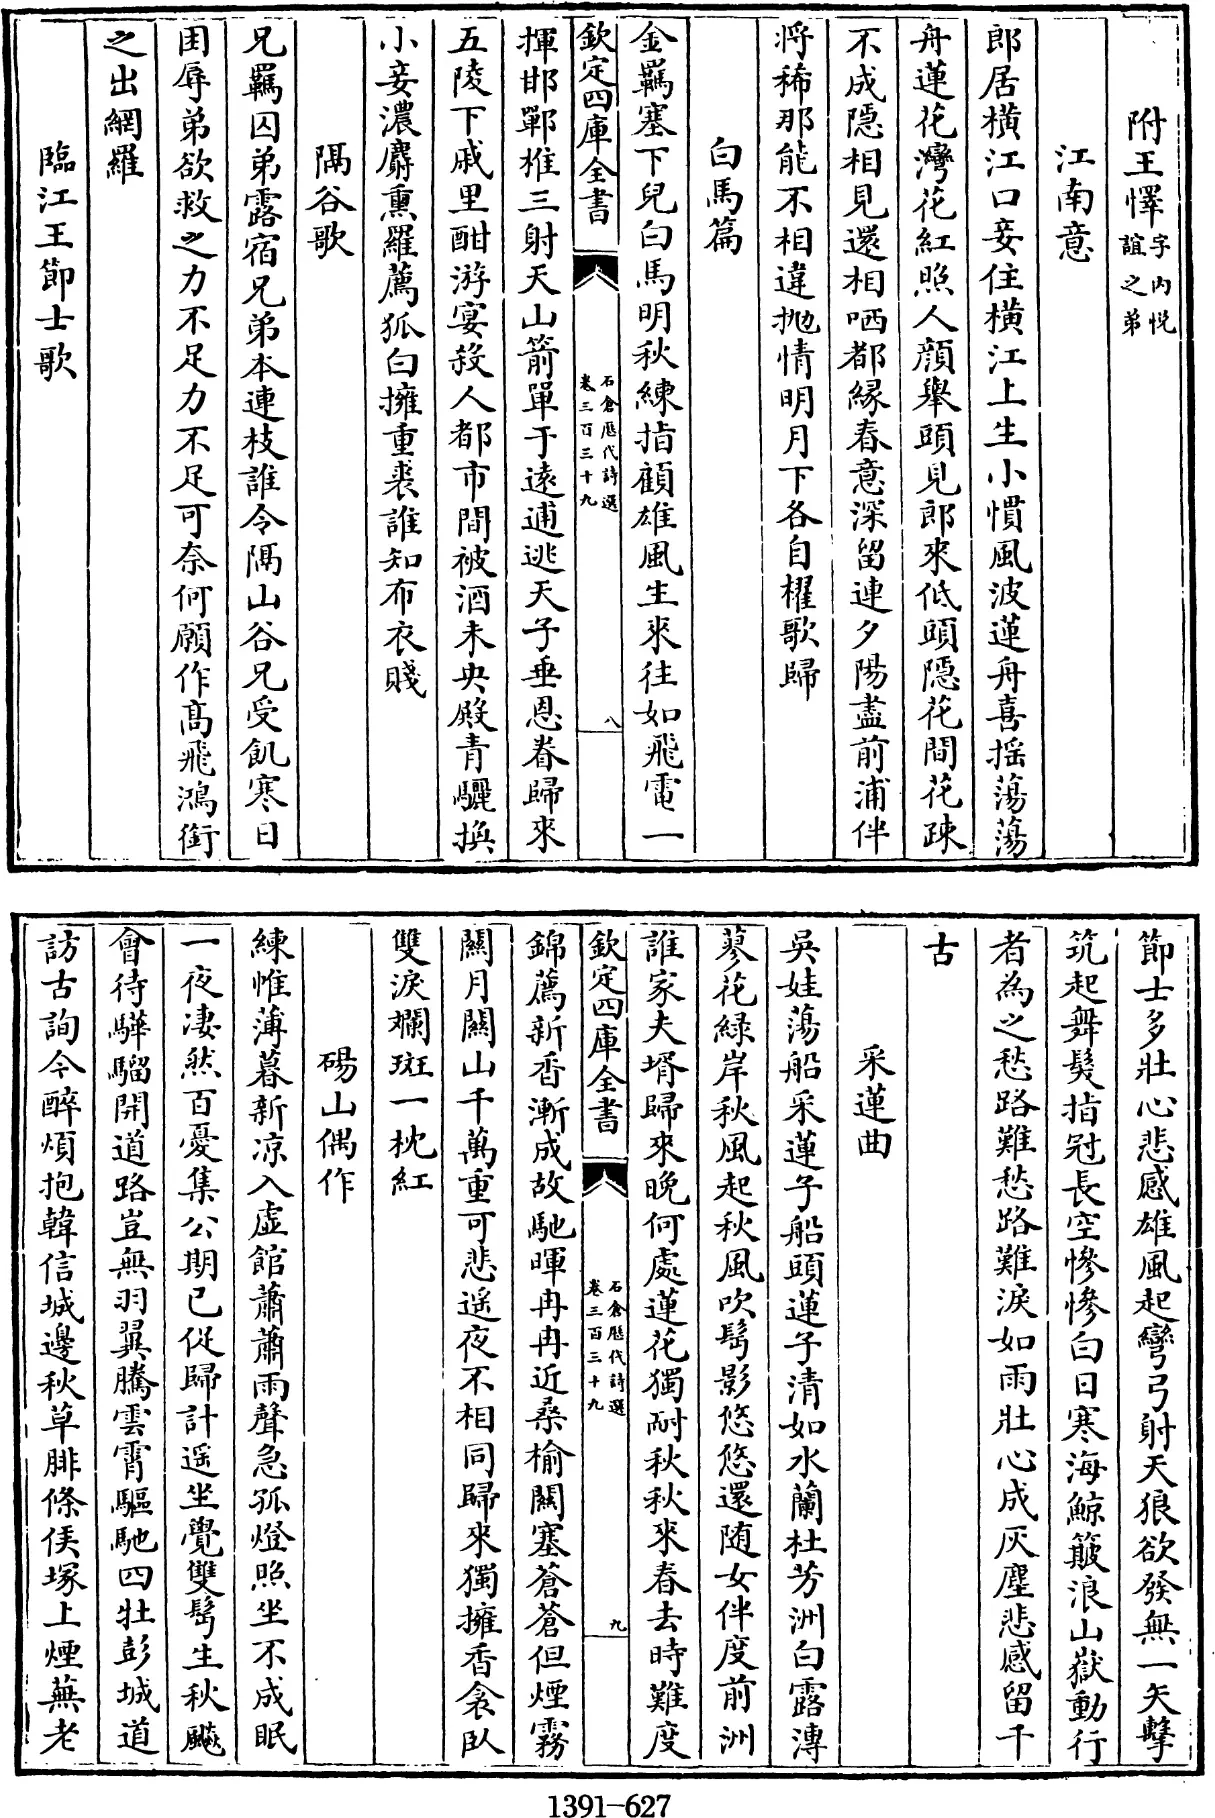 附王懌字内悦誼之弟
江南意
郎居橫江口妾住橫江上生小慣風波蓮舟喜揺蕩蕩
舟蓮花灣花紅照人顔舉頭見郎來低頭隠花間花疎
不成隠相見還相哂都縁春意深留連夕陽盡前浦伴
將稀那能不相違抛情明月下各自櫂歌歸
白馬篇
金羈塞下兒白馬明秋練指顧雄風生來往如飛電一
欽定四庫全書
石倉歴代詩選
卷三百三十九
八
揮邯鄲椎三射天山箭單于逺逋逃天子垂恩眷歸來
五陵下戚里酣游宴殺人都市間被酒未央殿青驪換
小妾濃麝熏羅薦狐白擁重裘誰知布衣賤
隔谷歌
兄羈囚弟露宿兄弟本連枝誰令隔山谷兄受飢寒日
困辱弟欲救之力不足力不足可奈何願作髙飛鴻銜
之出網羅
臨江王節士歌
節士多壯心悲感雄風起彎弓射天狼欲發無一矢擊
筑起舞髮指冠長空慘慘白日寒海鯨簸浪山嶽動行
者為之愁路難愁路難淚如雨壯心成灰塵悲感留千
古
采蓮曲
吳娃蕩船采蓮子船頭蓮子清如水蘭杜芳洲白露漙
蓼花緑岸秋風起秋風吹髩影悠悠還随女伴度前洲
誰家夫壻歸來晚何處蓮花獨耐秋秋來春去時難度
欽定四庫全書
石倉歴代詩選
卷三百三十九
九
錦薦新香漸成故馳暉冉冉近桑榆關塞蒼蒼但煙霧
關月關山千萬重可悲遥夜不相同歸來獨擁香衾臥
雙淚斕斑一枕紅
碭山偶作
練帷薄暮新凉入虚館蕭蕭雨聲急孤燈照坐不成眠
一夜凄然百憂集公期已促歸計遥坐覺雙髩生秋飈
會待驊騮開道路豈無羽翼騰雲霄驅馳四牡彭城道
訪古詢今醉煩抱韓信城邊秋草腓條侯塚上煙蕪老
1391-627